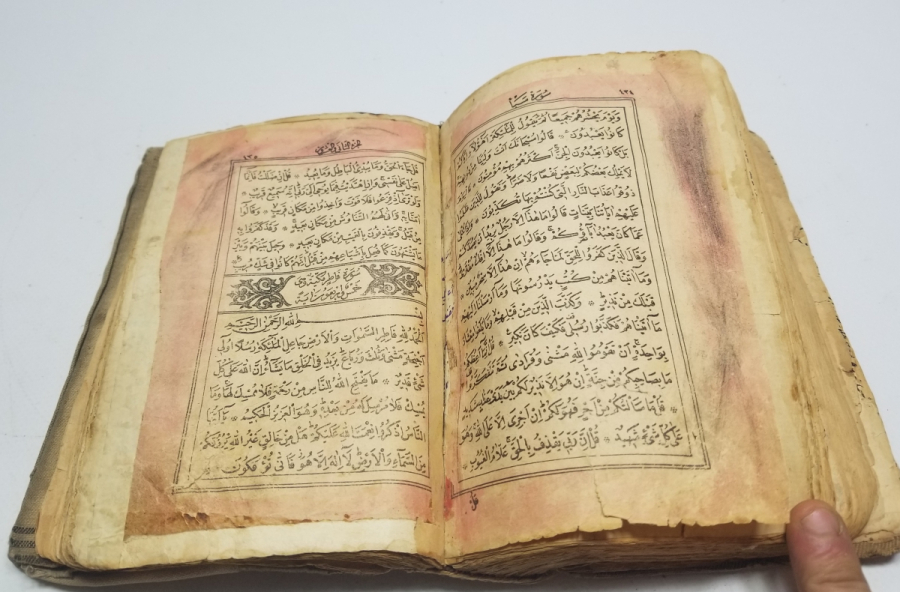 سورة سبا
ويوم يحشرهم جميعا ثم يقول للملئكة اهؤلاء اياكم
كانوا يعبدون * قالوا سبحانك انت ولينا من دونهم
بل كانوا يعبدون الجن اكثرهم بهم مؤمنون * فاليوم
لا يملك بعضكم لبعض نفعا ولا ضرا ونقول للذين ظلموا
ذوقوا عذاب النار التي كنتم بها تكذبون * واذا تتلى
عليهم اياتنا بينات قالوا ما هذا الا رجل يريد ان يصدكم
عما كان يعبد اباؤكم وقالوا ما هذا الا افك مفترى
وقال الذين كفروا للحق لما جاءهم ان هذا الا سحر مبين
وما اتيناهم من كتب يدرسونها وما ارسلنا اليهم
قبلك من نذير * وكذب الذين من قبلهم وما بلغوا معشار
ما اتيناهم فكذبوا رسلي فكيف كان نكير * قل انما اعظكم
بواحدة ان تقوموا لله مثنى وفرادى ثم تتفكروا
ما بصاحبكم من جنة ان هو الا نذير لكم بين يدي عذاب شديد
* قل ما سالتكم من اجر فهو لكم ان اجري الا على الله وهو
على كل شيء شهيد * قل ان ربي يقذف بالحق علام الغيوب *
قل
قل جاء الحق وما يبدئ الباطل وما يعيد * قل ان ضللت فانما
اضل على نفسي وان اهتديت فبما يوحي الي ربي انه سميع قريب *
ولو ترى اذ فزعوا فلا فوت واخذوا من مكان قريب * وقالوا
امنا به وانى لهم التناوش من مكان بعيد * وقد كفروا به
من قبل ويقذفون بالغيب من مكان بعيد * وحيل بينهم وبين
ما يشتهون كما فعل باشياعهم من قبل انهم كانوا في شك مريب *
سورة فاطر مكية وهي
خمس واربعون اية
بسم الله الرحمن الرحيم
الحمد لله فاطر السموات والارض جاعل الملئكة رسلا اولي
اجنحة مثنى وثلث ورباع يزيد في الخلق ما يشاء ان الله على كل
شيء قدير * ما يفتح الله للناس من رحمة فلا ممسك لها وما
يمسك فلا مرسل له من بعده وهو العزيز الحكيم * يا ايها
الناس اذكروا نعمت الله عليكم هل من خالق غير الله يرزقكم
من السماء والارض لا اله الا هو فانى تؤفكون